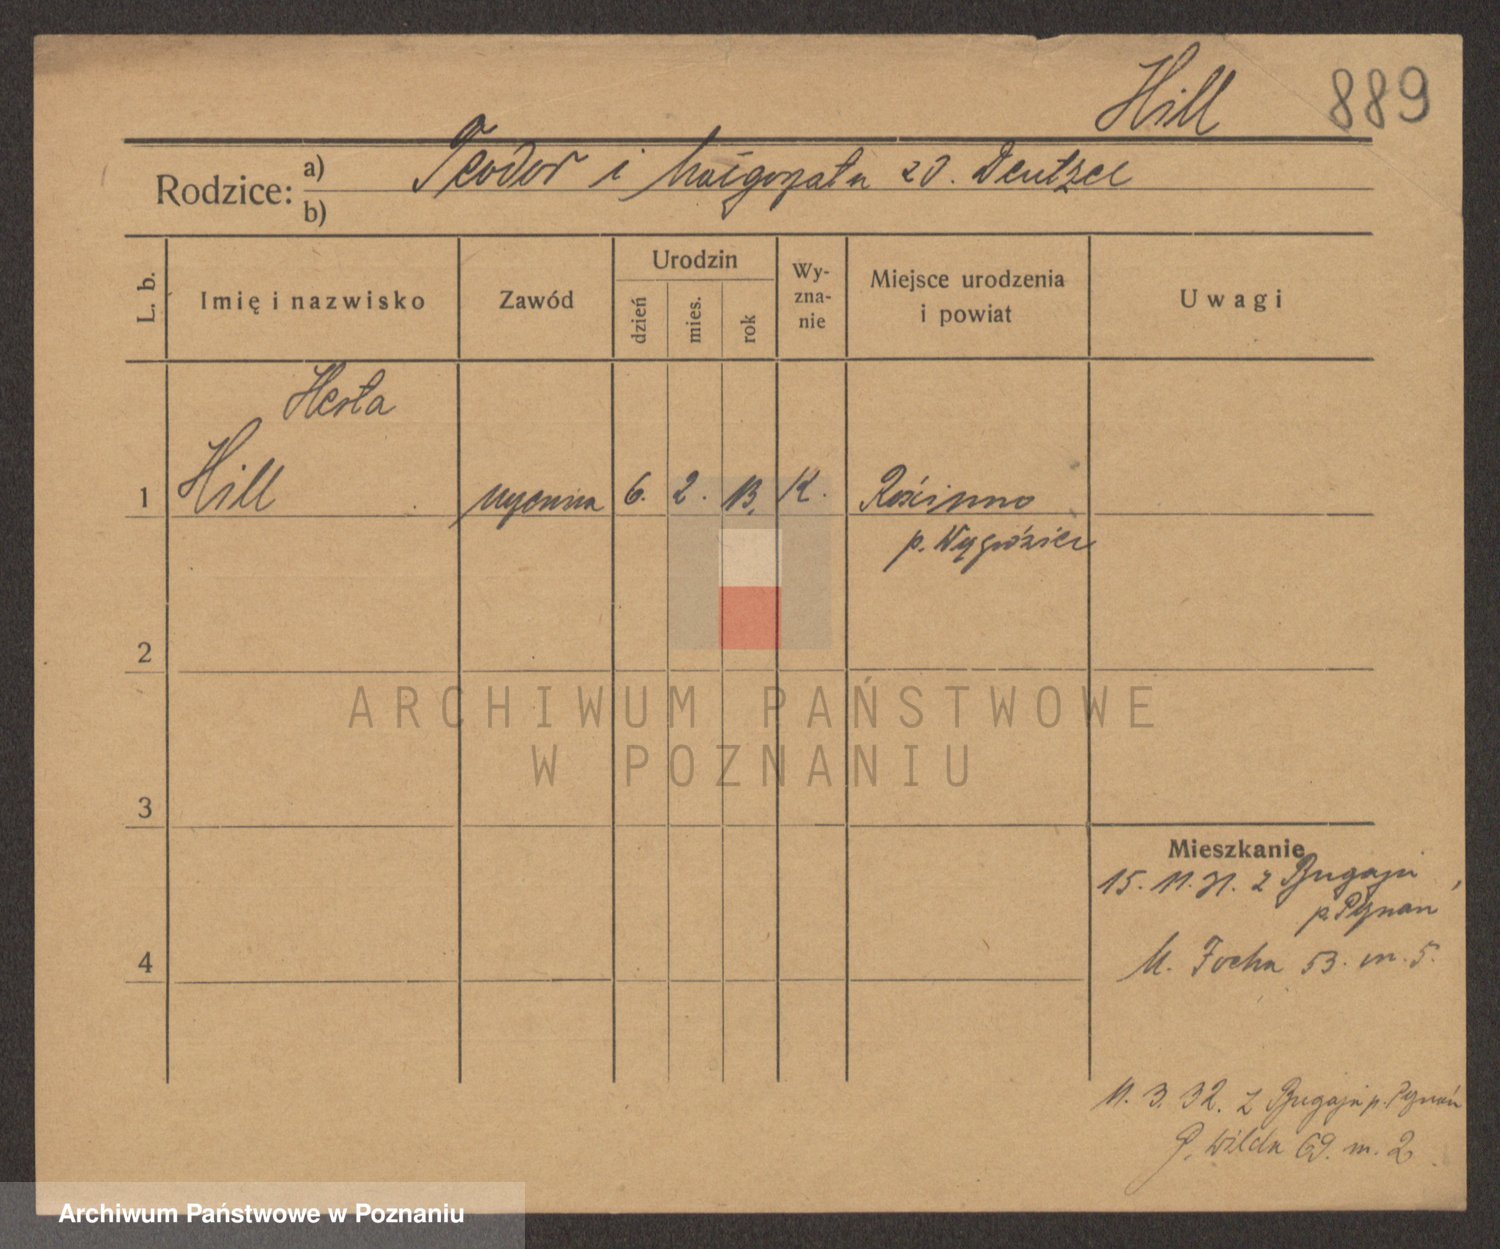 Hill 889
Rodzice: a) Teodor i Małgorzata zd. Deutzer
b)
L. b.
Imię i nazwisko
Zawód
Urodzin
dzień
mies.
rok
Wy-
zna-
nie
Miejsce urodzenia
i powiat
Uwagi
Herta
1 Hill 6. 2. 13. K. Rościnno
p. Wągrówiec
2
ARCHIWUM PAŃSTWOWE
W POZNANIU
3
Mieszkanie
15. 11. 31. z Bugaju,
p. Poznań
M. Focha 53. m. 5.
4
11. 3. 32. z Bugaju p. Poznań
G. Wilda 69. m. 2
Archiwum Państwowe w Poznaniu